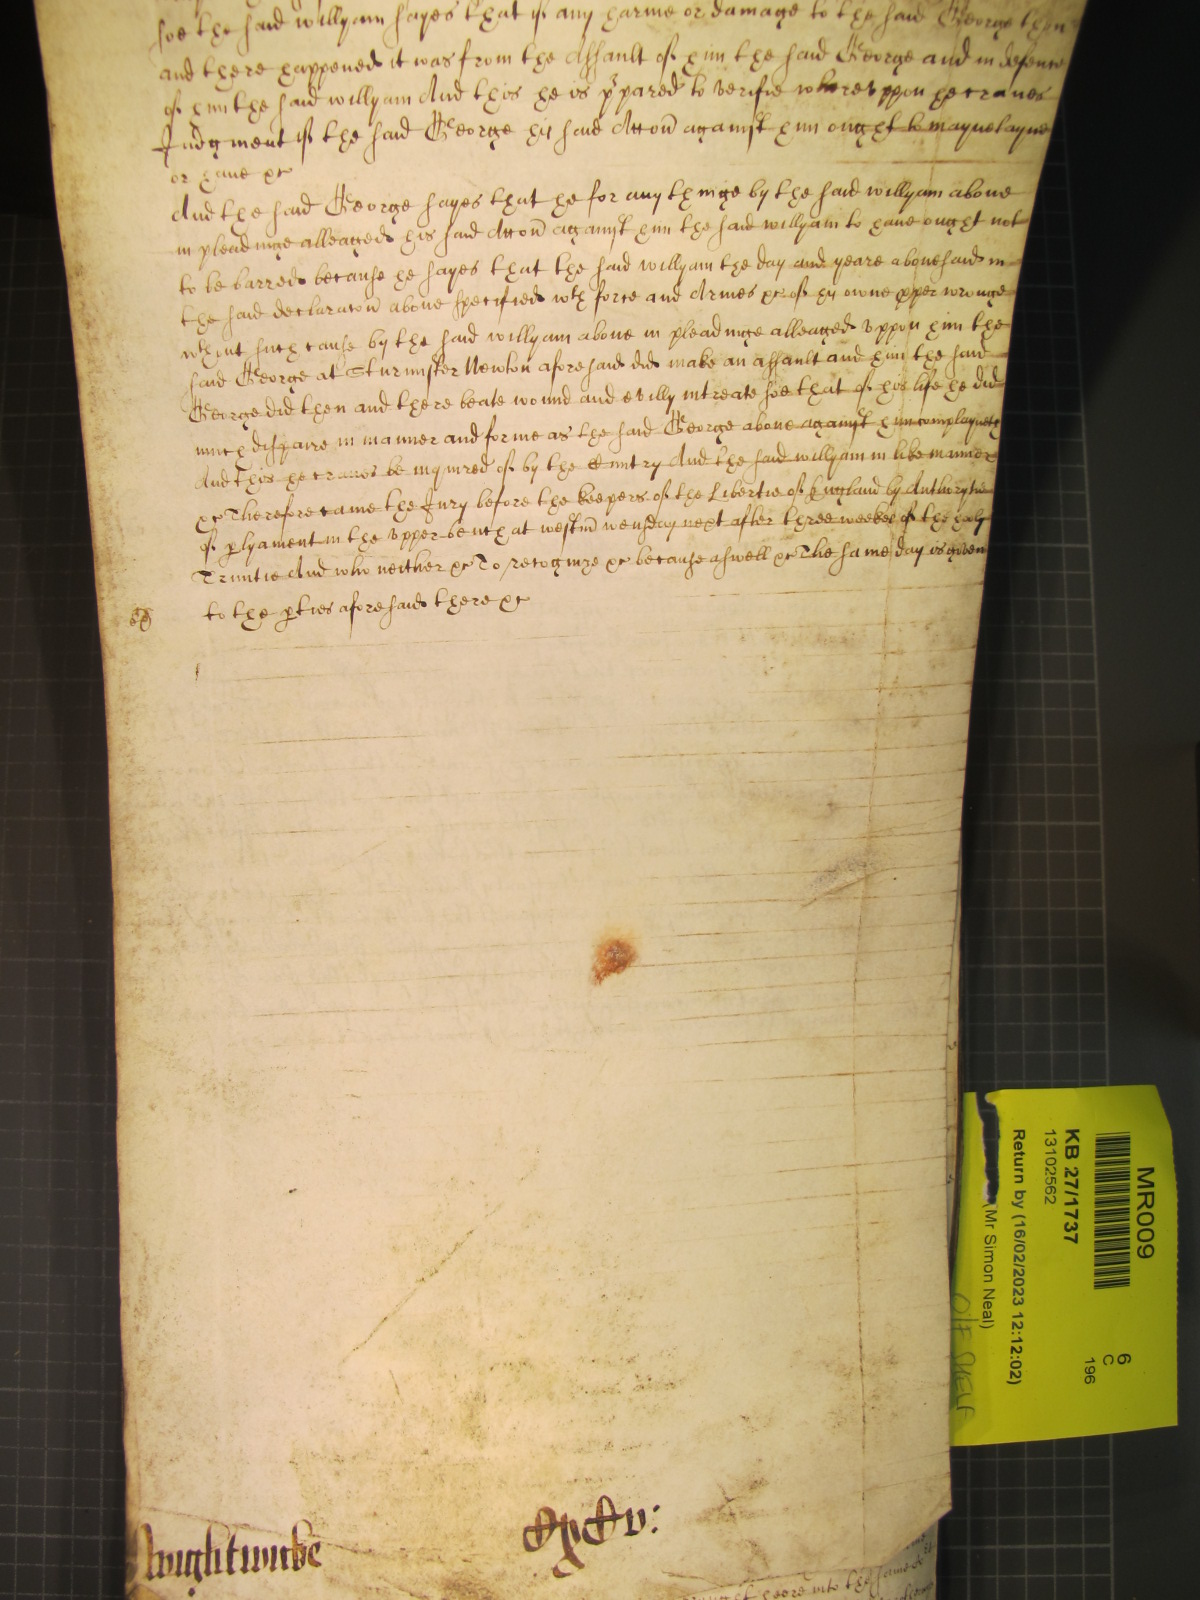 soe the said willyam sayes that if any harme or damage to the said George then
and there happened it was from the Assault of him the said George and in defence
of him the said willyam And this he is p'pared to verifie whereuppon he craues
Judgment if the said George his said Accon against him ought to maynetayne
or haue &c
And the said George sayes that he for any thinge by the said willyam aboue
in pleadinge alleaged his said Accon against him the said willyam to haue ought not
to be barred because he sayes that the said willyam the day and yeare abouesaid in
the said declaracon aboue specified wth force and Armes &c of his owne pper wronge
wthout such cause by the said willyam aboue in pleadinge alleaged vppon him the
said George at Sturmister Newton aforesaid did make an assault and him the said
George did then and there beate wound and evilly intreate soe that of his life he did
much dispaire in manner and forme as the said George aboue against him complayneth
And This he craues be inquired of by the Cuntry And the said willyam in like manner
&c Therefore came the Jury before the keepers of the Libertie of England by Authorytie
of plyament in the vpper bench at westm wensday next after three weekes of the holy
Trinitie And who neither &c To recognize &c because aswell &c The same day is given
to the pties aforesaid there &c
MR009
KB 27/1737
13102562
Return by (16/02/2023 12:12:02)
(Mr Simon Neal)
6
C
196
O/F SHELF
Wightwicke